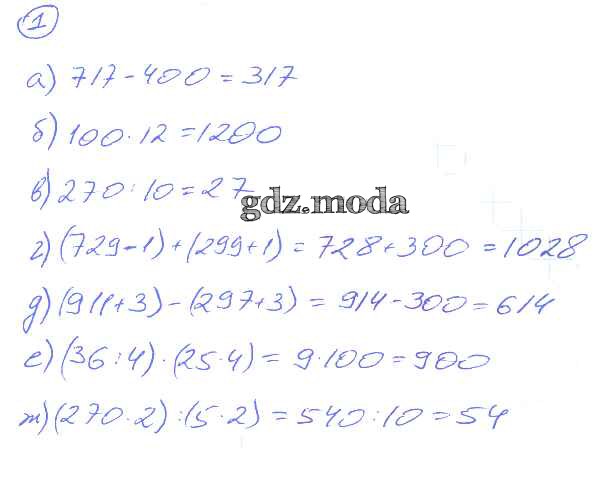 1
а) 717 - 400 = 317
б) 100 · 12 = 1200
в) 270 : 10 = 27
gdz.moda
г) (729-1) + (299+1) = 728 + 300 = 1028
д) (911+3) - (297+3) = 914 - 300 = 614
е) (36 : 4) · (25 · 4) = 9 · 100 = 900
ж) (270 · 2) : (5 · 2) = 540 : 10 = 54